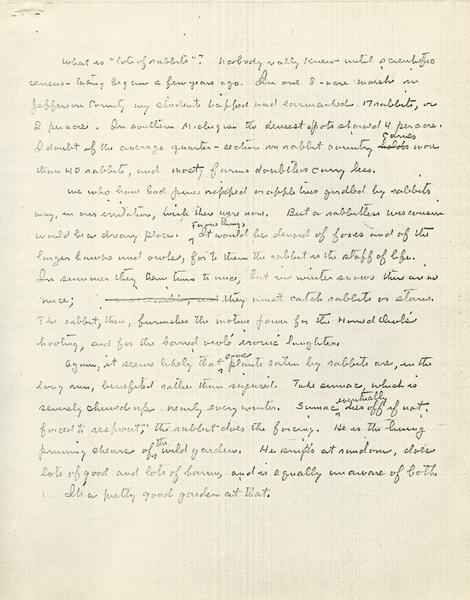 What is "lots of rabbits"? Nobody really knew until scientific
census-taking began a few years ago. In one 8-acre marsh in
Jefferson County my students trapped and earmarked 17 rabbits, or
2 per acre. In southern Michigan the densest spots showed 4 per acre.
I doubt if the average quarter-section in rabbit country holds carries more
than 40 rabbits, and most farms doubtless carry less.
We who have had jeans ripped or apple trees girdled by rabbits
may, in our irritation, wish there were none. But a rabbitless Wisconsin
would be a dreary place. For one thing, It would be devoid of foxes and of the
larger hawks and owls, for to them the rabbit is the staff of life.
In summer they can turn to mice, but in winter snows there are no
mice; they must catch rabbits or starve.
The rabbit, then, furnishes the motive power for the Horned Owl's
hooting, and for the barred owl's ironic laughter.
Again, it seems likely that some plants eaten by rabbits are, in the
long run, benefited rather than injured. Take sumac, which is
severely chewed up nearly every winter. Sumac eventually dies off if not
forced to resprout; the rabbit does the forcing. He is the living
pruning shears of the wild garden. He snips at random, does
lots of good and lots of harm, and is equally unaware of both.
It's a pretty good garden at that.